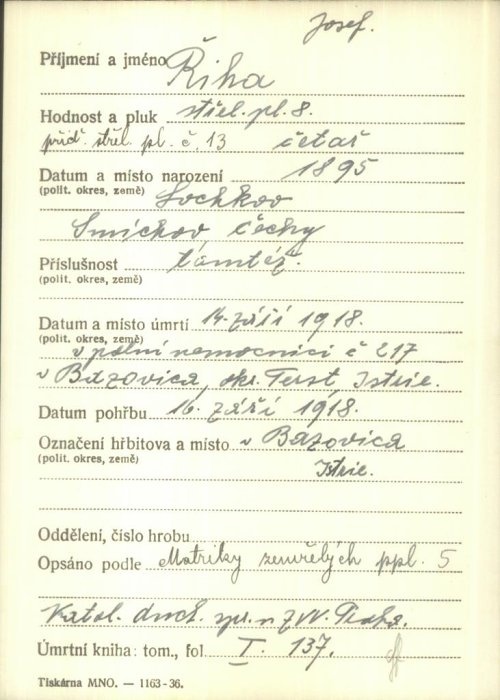 Josef.
Příjmení a jméno Říha
Hodnost a pluk střel. pl. 8.
příď. střel. pl. č. 13 četař
Datum a místo narození 1895
(polit. okres, země) Lochkov
Smíchov čechy
Příslušnost tamtéž.
(polit. okres, země)
Datum a místo úmrtí 14. září 1918.
(polit. okres, země) v polní nemocnici č 217
v Bazovica, okr. Terst, Istrie.
Datum pohřbu 16. září 1918.
Označení hřbitova a místo v Bazovica
(polit. okres, země) Istrie.
Oddělení, číslo hrobu
Opsáno podle Matriky zemřelých ppl. 5
Katol. duch. spr. n ZVV. Praha.
Úmrtní kniha: tom., fol. I. 137.
Tiskárna MNO. — 1163-36.